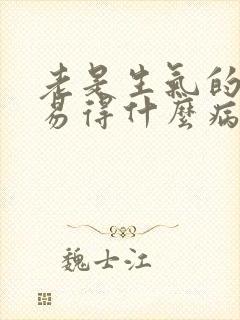 老是生氣的
易得什麼病
魏士江